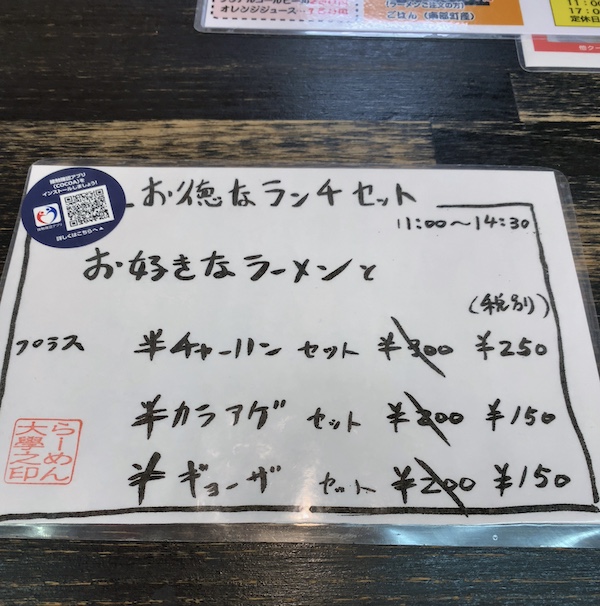 オレンジジュース
ラーメンご注文の方
ごはん（南部町産）
11:00
17:0
定休日
接触確認アプリ
(COCOA)を
インストールしましょう!
詳しくはこちらへ▲
お徳なランチセット
11:00〜14:30
お好きなラーメンと
(税別)
プラス 半チャーハン セット ¥300 ¥250
半カラアゲ セット ¥200 ¥150
半ギョーザ セット ¥200 ¥150
らーめん
大學之印